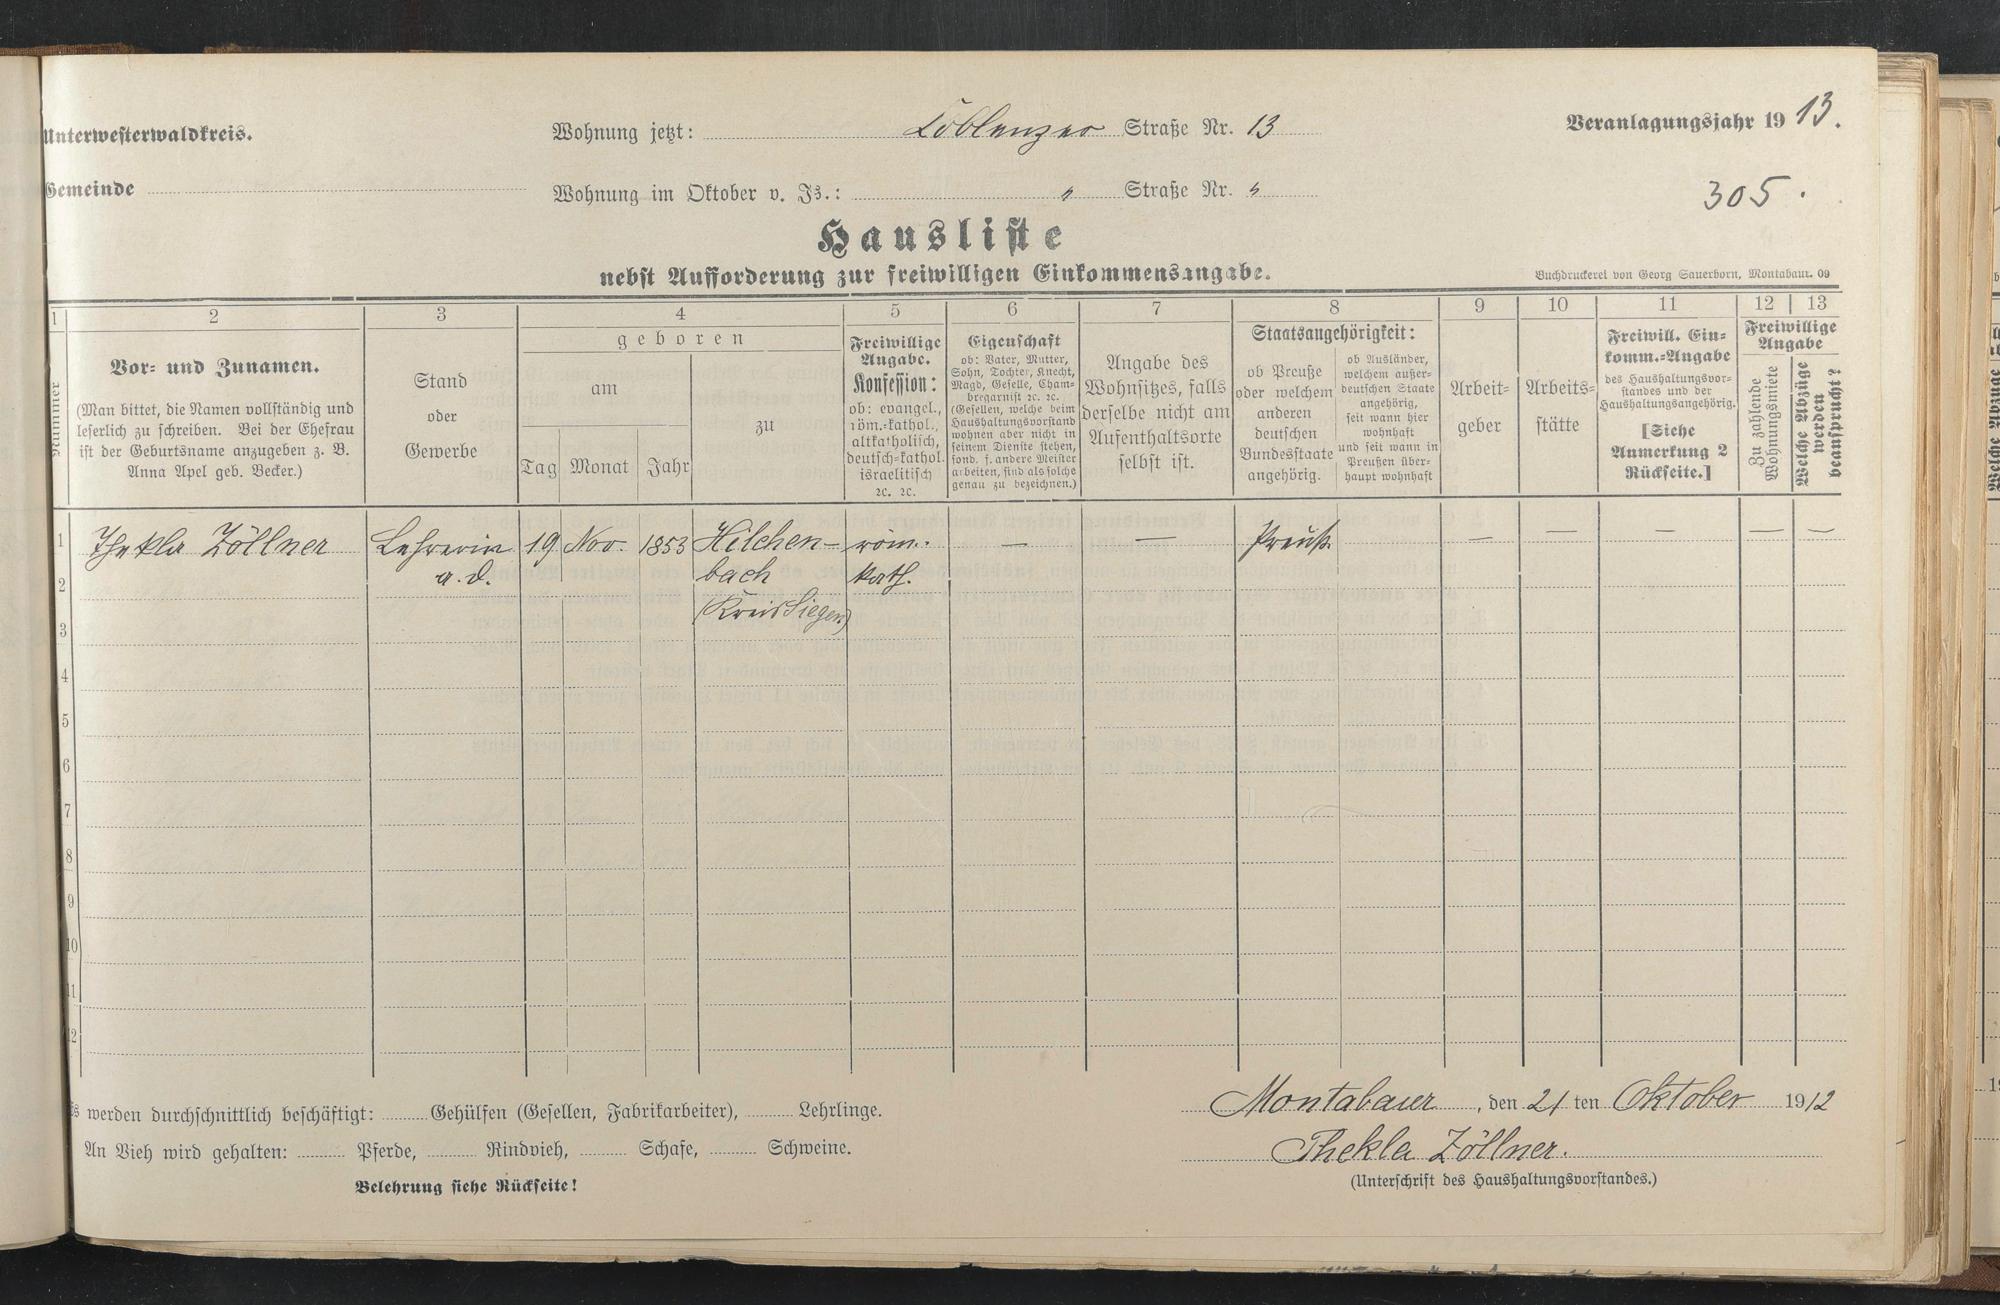 Unterwesterwaldkreis.
Wohnung jetzt: Coblenzer Straße Nr. 13
Veranlagungsjahr 1913.
Gemeinde
Wohnung im Oktober v. Js.: " Straße Nr. "
305.
Hausliste
nebst Aufforderung zur freiwilligen Einkommensangabe.
Buchdruckerei von Georg Sauerborn, Montabaur. 09
1 2 3 4 5 6 7 8 9 10 11 12 13
Nummer
Vor- und Zunamen.
(Man bittet, die Namen vollständig und
leserlich zu schreiben. Bei der Ehefrau
ist der Geburtsname anzugeben z. B.
Anna Apel geb. Becker.)
Stand
oder
Gewerbe
geboren
am
Tag Monat Jahr
zu
Freiwillige
Angabe.
Konfession:
ob: evangel.,
röm.-kathol.,
altkatholisch,
deutsch-kathol.
israelitisch
ec. ec.
Eigenschaft
ob: Vater, Mutter,
Sohn, Tochter, Knecht,
Magd, Geselle, Cham-
bregarnist ec. ec.
(Gesellen, welche beim
Haushaltungsvorstand
wohnen aber nicht in
seinem Dienste stehen,
sond. f. andere Meister
arbeiten, sind als solche
genau zu bezeichnen.)
Angabe des
Wohnsitzes, falls
derselbe nicht am
Aufenthaltsorte
selbst ist.
Staatsangehörigkeit:
ob Preuße
oder welchem
anderen
deutschen
Bundesstaate
angehörig.
ob Ausländer,
welchem außer-
deutschen Staate
angehörig,
seit wann hier
wohnhaft
und seit wann in
Preußen über-
haupt wohnhaft
Arbeit-
geber
Arbeits-
stätte
Freiwill. Ein-
komm.-Angabe
des Haushaltungsvor-
standes und der
Haushaltungsangehörig.
[Siehe
Anmerkung 2
Rückseite.]
Freiwillige
Angabe
Zu zahlende
Wohnungsmiete
Welche Abzüge
werden
beansprucht?
1 Thekla Zöllner Lehrerin 19 Nov. 1853 Hilchen- röm.- — — Preuß. — — — — —
2 a. d. bach kath.
3 (Kreis Siegen)
4
5
6
7
8
9
10
11
12
werden durchschnittlich beschäftigt: Gehülfen (Gesellen, Fabrikarbeiter), Lehrlinge.
An Vieh wird gehalten: Pferde, Rindvieh, Schafe, Schweine.
Belehrung siehe Rückseite!
Montabaur, den 21 ten Oktober 1912
Thekla Zöllner.
(Unterschrift des Haushaltungsvorstandes.)